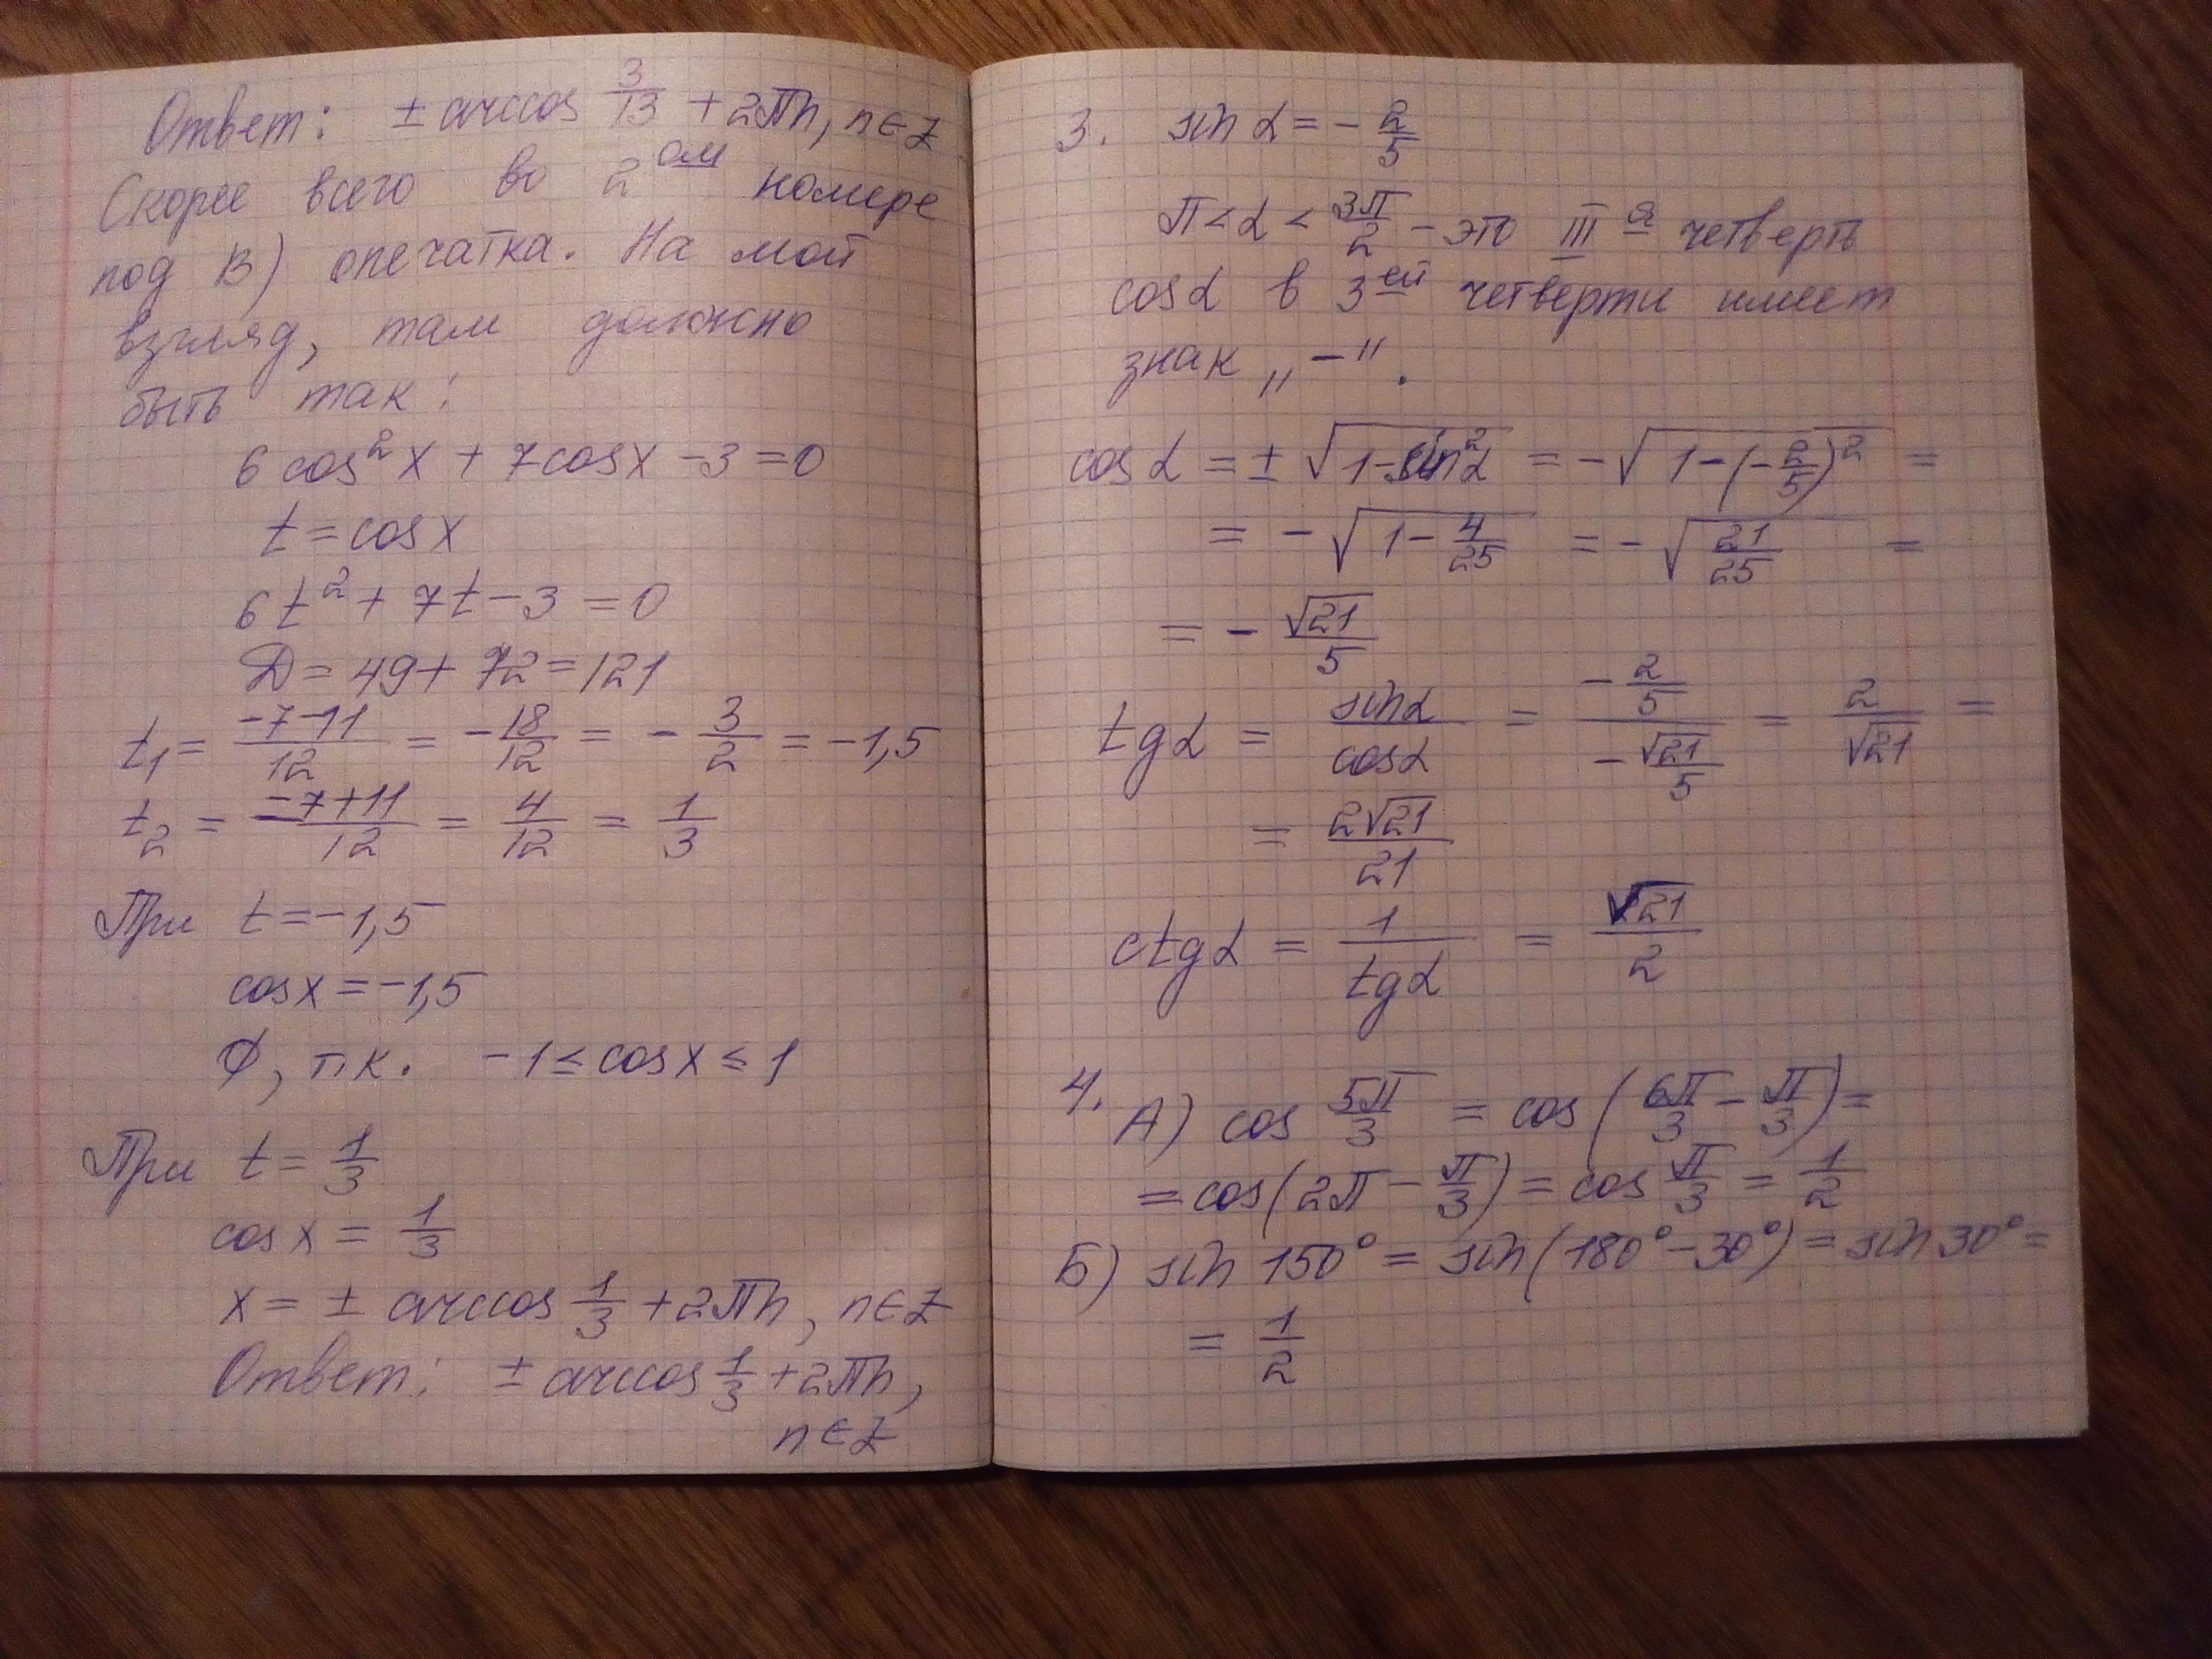 Ответ: ± arccos 3/13 + 2πn, n∈Z
Скорее всего во 2ом номере
под В) опечатка. На мой
взгляд, там должно
быть так:
6 cos²x + 7cosx - 3 = 0
t = cosx
6t² + 7t - 3 = 0
D = 49 + 72 = 121
t₁ = (-7-11)/12 = -18/12 = -3/2 = -1,5
t₂ = (-7+11)/12 = 4/12 = 1/3
При t = -1,5
cosx = -1,5
∅, т.к. -1 ≤ cosx ≤ 1
При t = 1/3
cosx = 1/3
x = ± arccos 1/3 + 2πn, n∈Z
Ответ: ± arccos 1/3 + 2πn,
n∈Z
3. sin α = - 2/5
π < α < 3π/2 - это III я четверть
cosα в 3ей четверти имеет
знак „-".
cos α = ± √(1-sin²α) = -√(1-(-2/5)²) =
= -√(1 - 4/25) = -√(21/25) =
= - √21/5
tgα = sinα/cosα = (-2/5)/(-√21/5) = 2/√21 =
= 2√21/21
ctgα = 1/tgα = √21/2
4. А) cos 5π/3 = cos(6π/3 - π/3) =
= cos(2π - π/3) = cos π/3 = 1/2
Б) sin 150° = sin(180° - 30°) = sin 30° =
= 1/2